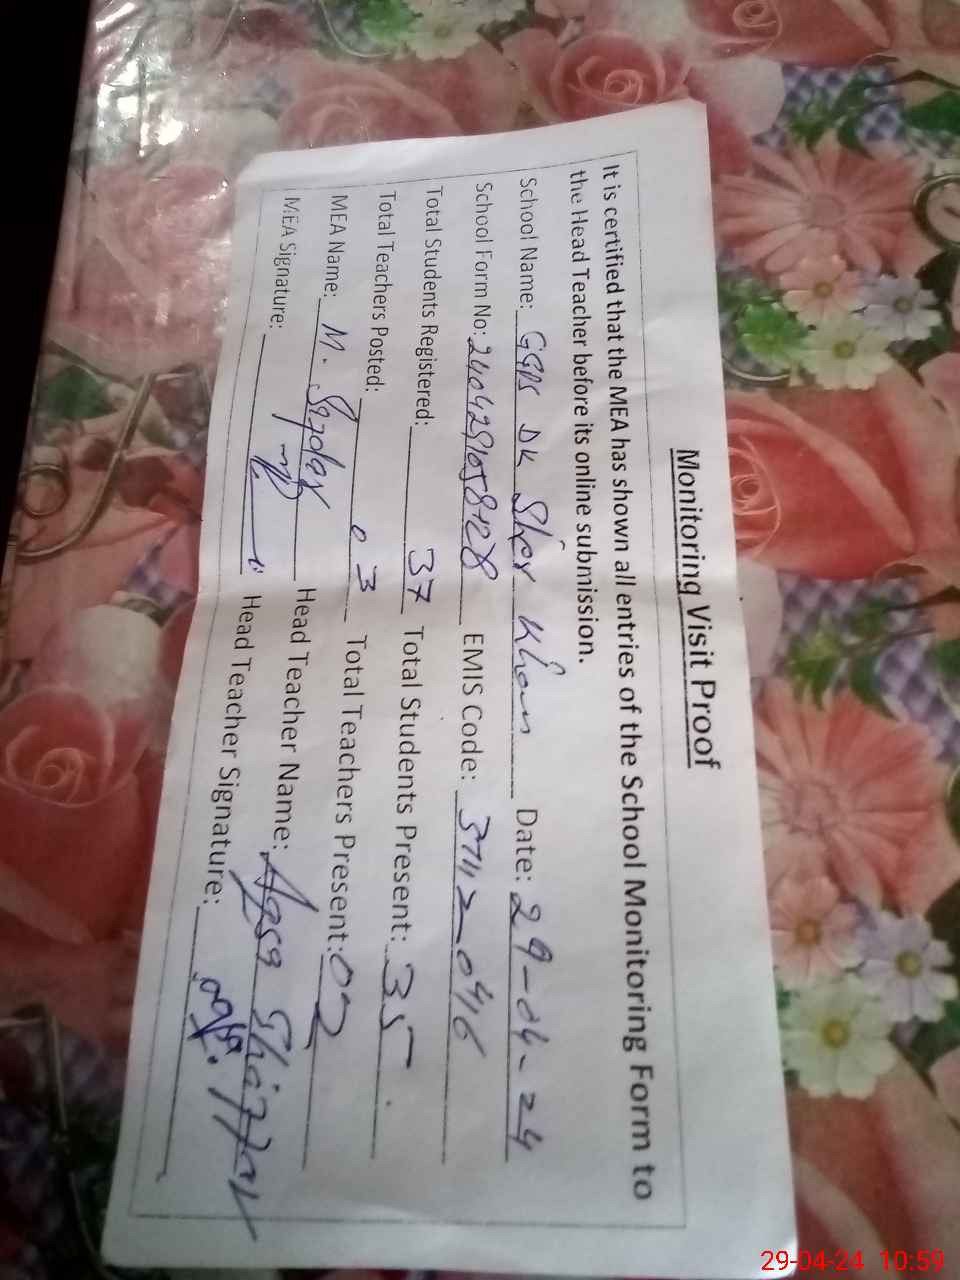 Monitoring Visit Proof
It is certified that the MEA has shown all entries of the School Monitoring Form to
the Head Teacher before its online submission.
School Name: GGPS DK Sher Khan Date: 29-04-24
School Form No: EMIS Code: 37120416
Total Students Registered: 37 Total Students Present: 35
Total Teachers Posted: 03 Total Teachers Present: 02
MEA Name: M. Head Teacher Name:
MEA Signature: Head Teacher Signature:
29-04-24 10:59